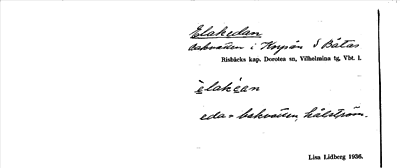 Elakedan
bakvatten i Korpån S Båtas
Risbäcks kap. Dorotea sn, Vilhelmina tg, Vbt. l.
èlakèan
eda = bakvatten, hålström.
Lisa Lidberg 1936.